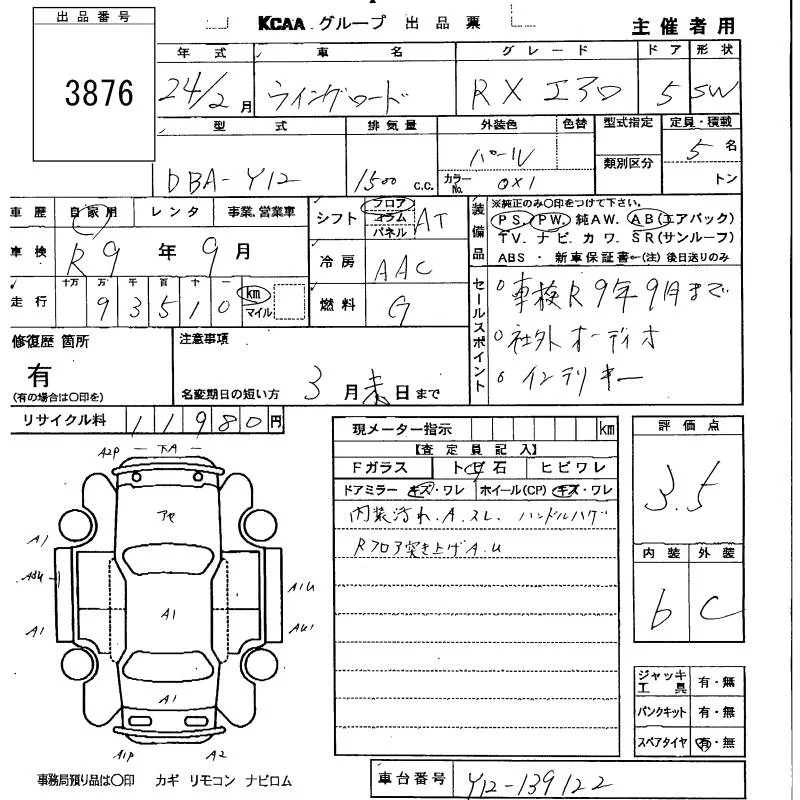 出品番号
3876
KCAA グループ 出品票
主催者用
年式 車名 グレード ドア 形状
24/2月 ウイングロード RX エアロ 5 SW
型式 排気量 外装色 色替 型式指定 定員・積載
DBA-Y12 1500 C.C. パール 類別区分 5名
カラーNo. 0X1 トン
車歴 自家用 レンタ 事業,営業車
シフト フロア コラム パネル AT
装備品 ※純正のみ〇印をつけて下さい。
PS. PW. 純AW. AB(エアバック)
TV. ナビ. カワ. SR(サンルーフ)
ABS ・ 新車保証書←(注)後日送りのみ
車検 R9年9月
冷房 AAC
走行 十万 万 千 百 十
93510 km マイル
燃料 G
セールスポイント
○車検R9年9月まで
○社外オーディオ
○インテリキー
修復歴 箇所
有
(有の場合は〇印を)
注意事項
名変期日の短い方 3月末日まで
リサイクル料 11980円
現メーター指示 km
【査定員記入】
Fガラス トビ石 ヒビワレ
ドアミラー キズ・ワレ ホイール(CP) キズ・ワレ
内装汚れ.A.スレ. ハンドルハゲ
Rフロア突き上げA.U
評価点
3.5
内装 外装
b C
ジャッキ工具 有・無
パンクキット 有・無
スペアタイヤ 有・無
A2P 下A
アセ
A1
A1
A1U
A1
A1
AU1
A1
A1P A2
事務局預り品は〇印 カギ リモコン ナビロム
車台番号 Y12-139122